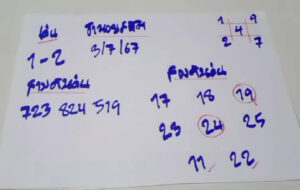 1 9
4
2 7
เด่น
1-2
3/7/67
สามตัวเด่น
723 824 519
สองตัวเด่น
17 18 19
23 24 25
11 22